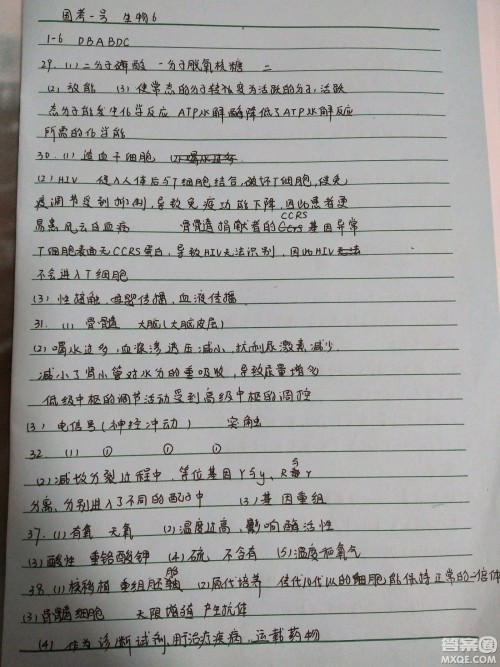 国考一号 生物6
1-6 DBABDC
29. (1) 二分子磷酸 一分子脱氧核糖 二
(2) 放能 (3) 使常态的分子转变为活跃的分子, 活跃
态分子能发生化学反应 ATP水解酶降低了ATP水解反应
所需的化学能
30. (1) 造血干细胞
(2) HIV 侵入人体后与T细胞结合, 破坏T细胞, 使免
疫调节受到抑制, 导致免疫功能下降, 因此患者更
易患 白血病 骨髓捐献者的CCR5基因异常
T细胞表面无CCR5蛋白, 导致HIV无法识别, 因此HIV
不会进入T细胞
(3) 性接触, 母婴传播, 血液传播
31. (1) 骨髓 大脑(大脑皮层)
(2) 喝水过多, 血浆渗透压减小, 抗利尿激素减少
减小了肾小管对水分的重吸收, 导致尿量增多
低级中枢的调节活动受到高级中枢的调控
(3) 电信号(神经冲动) 突触
32. (1) ① ① ①
(2) 减数分裂过程中, 等位基因Y与y、R与r
分离, 分别进入了不同的配子中 (3) 基因重组
37. (1) 有氧 无氧 (2) 温度过高, 影响酶活性
(3) 酸性 重铬酸钾 (4) 硫 不含有 (5) 温度和氧气
38. (1) 核移植 重组胚胎 (2) 原代培养 传代10代以内的细胞能保持正常的二倍体
(3) 骨髓瘤细胞 无限增殖 产生抗体
(4) 作为诊断试剂, 用于治疗疾病, 运载药物
答案圈
MXQE.COM